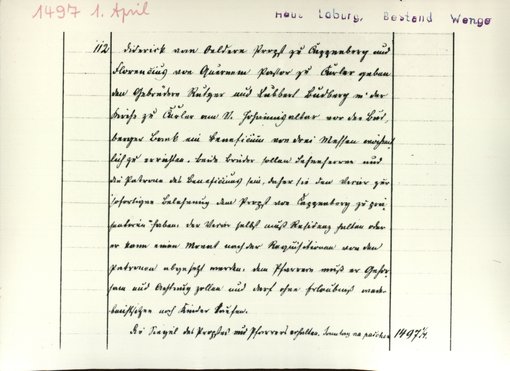 1497 1. April
Haus Loburg, Bestand Wenge
112 Diderick van Oeldere Propst zu Cappenberg und
Florencius von Quernem Pastor zu Kurler geben
den Gebrüdern Rutger und Lubbert Budberg in der
Kirche zu Kurler am St. Johannisaltar vor der Bud-
berger Bank ein Beneficium von drei Messen wöchent-
lich zu errichten. Beide Brüder sollen Lehnsherren und
die Patrone des Beneficiums sein, daher sie den Vicar zur
sofortigen Belehnung dem Propst von Cappenberg zu prä-
sentieren haben. Der Vicar selbst muß Residenz halten oder
er kann einen Monat nach der Requisition von den
Patronen abgesetzt werden; dem Pfarrer muß er Gehor-
sam und zollen und darf ohne Erlaubniß weder
noch Kinder taufen.
Die Siegel des Propstes und Pfarrers erhalten. Sonntag na paschen 1497 1/4.